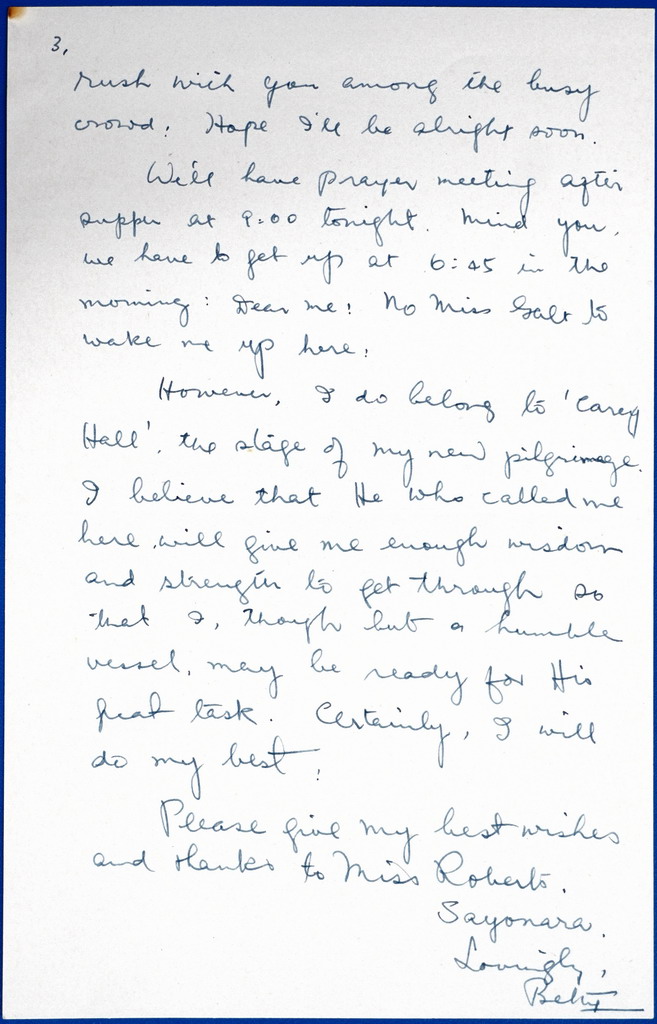 3,
rush with you among the busy
crowd! Hope I'll be alright soon.
We'll have prayer meeting after
supper at 9:00 tonight. Mind you,
we have to get up at 6:45 in the
morning! Dear me! No Miss Galt to
wake me up here!
However, I do belong to 'Carey
Hall', the stage of my new pilgrimage.
I believe that He who called me
here, will give me enough wisdom
and strength to get through so
that I, though but a humble
vessel, may be ready for His
great task. Certainly, I will
do my best!
Please give my best wishes
and thanks to Miss Roberts.
Sayonara.
Lovingly,
Betty